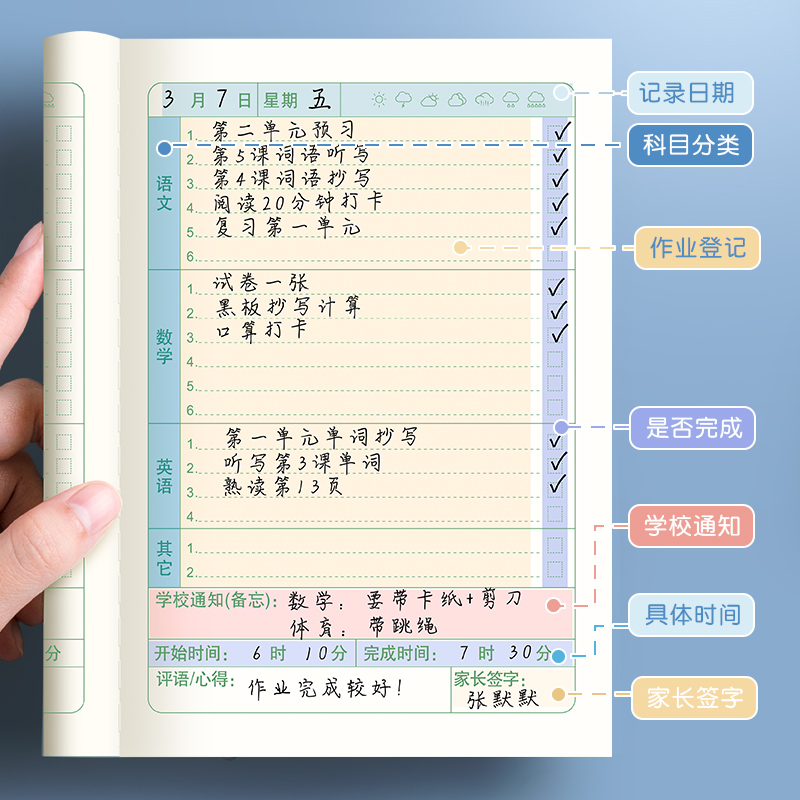 3 月 7 日 星期 五
记录日期
语文
科目分类
1. 第二单元预习
2. 第5课词语听写
3. 第4课词语抄写
4. 阅读20分钟打卡
5. 复习第一单元
6.
作业登记
数学
1. 试卷一张
2. 黑板抄写计算
3. 口算打卡
4.
5.
6.
英语
1. 第一单元单词抄写
2. 听写第3课单词
3. 熟读第13页
4.
是否完成
其它
1.
2.
学校通知(备忘): 数学: 要带卡纸+剪刀
体育: 带跳绳
学校通知
开始时间: 6 时 10 分 完成时间: 7 时 30 分
具体时间
评语/心得: 作业完成较好!
家长签字: 张默默
家长签字
分